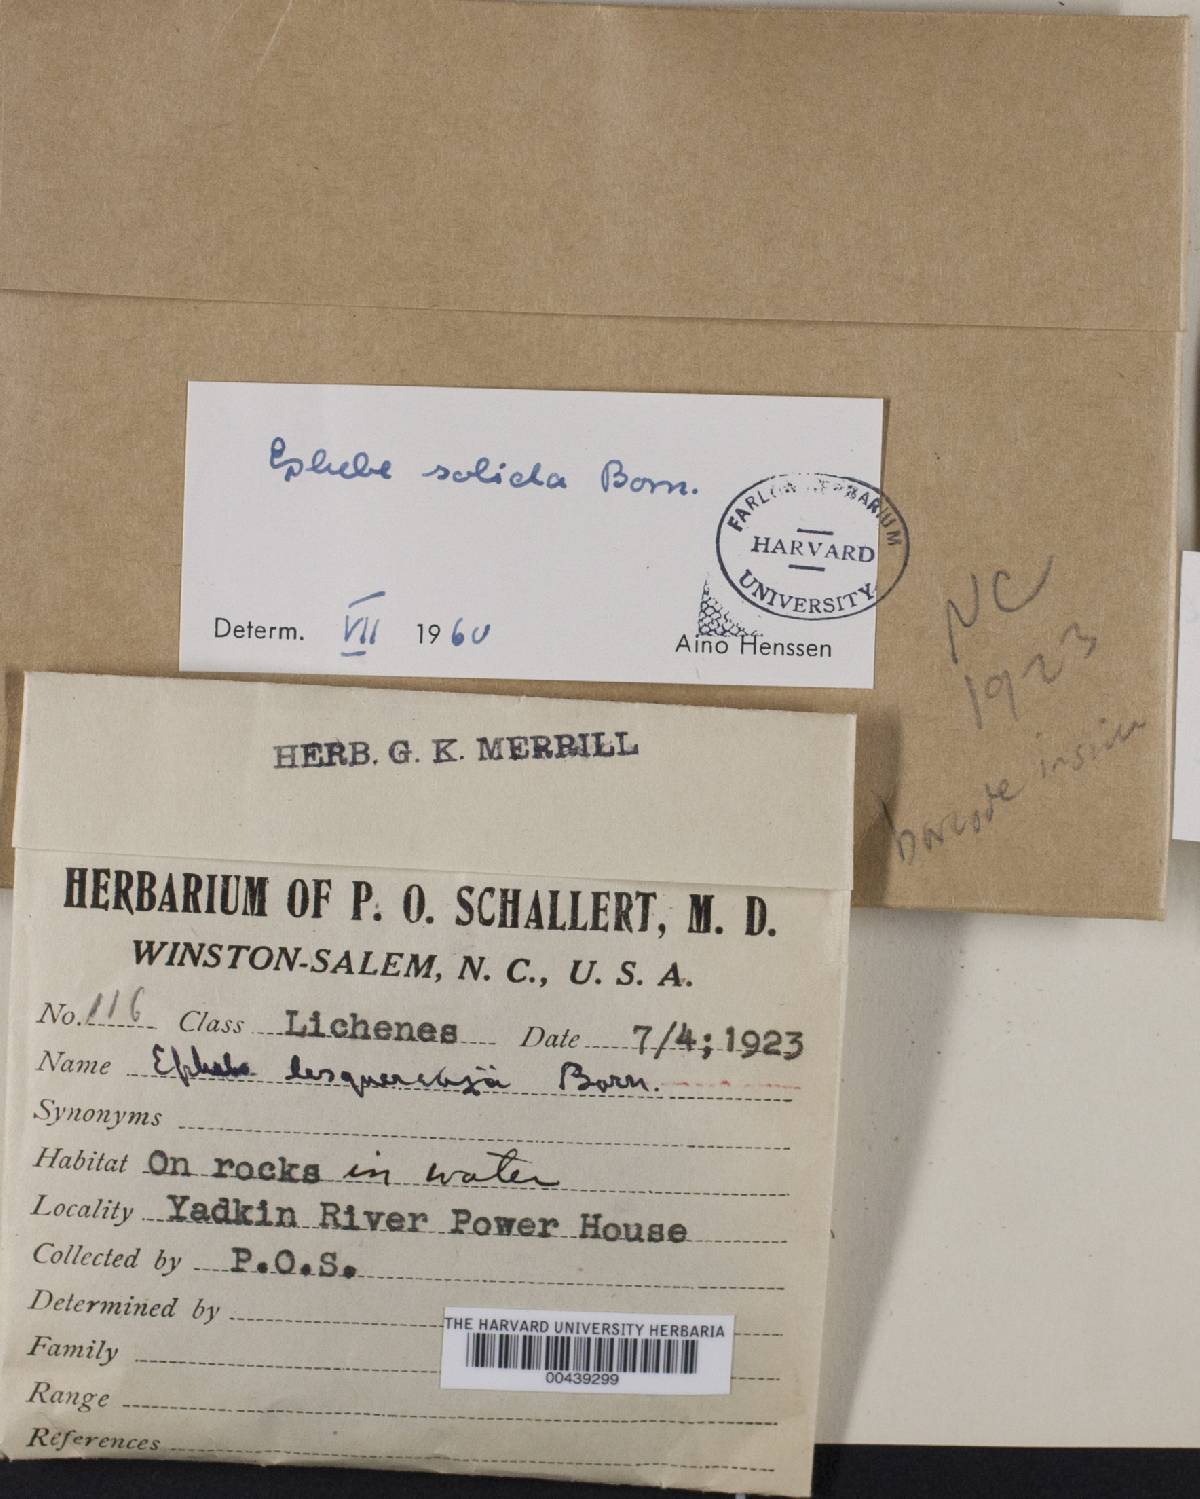 Ephebe solida Born.
FARLOW HERBARIUM
HARVARD
UNIVERSITY
Determ. VII 1960
Aino Henssen
NC
1923
barcode inside
HERB. G. K. MERRILL
HERBARIUM OF P. O. SCHALLERT, M. D.
WINSTON-SALEM, N. C., U. S. A.
No. 116 Class Lichenes Date 7/4; 1923
Name Ephebe Born.
Synonyms
Habitat On rocks in water
Locality Yadkin River Power House
Collected by P.O.S.
Determined by
THE HARVARD UNIVERSITY HERBARIA
Family
00439299
Range
References